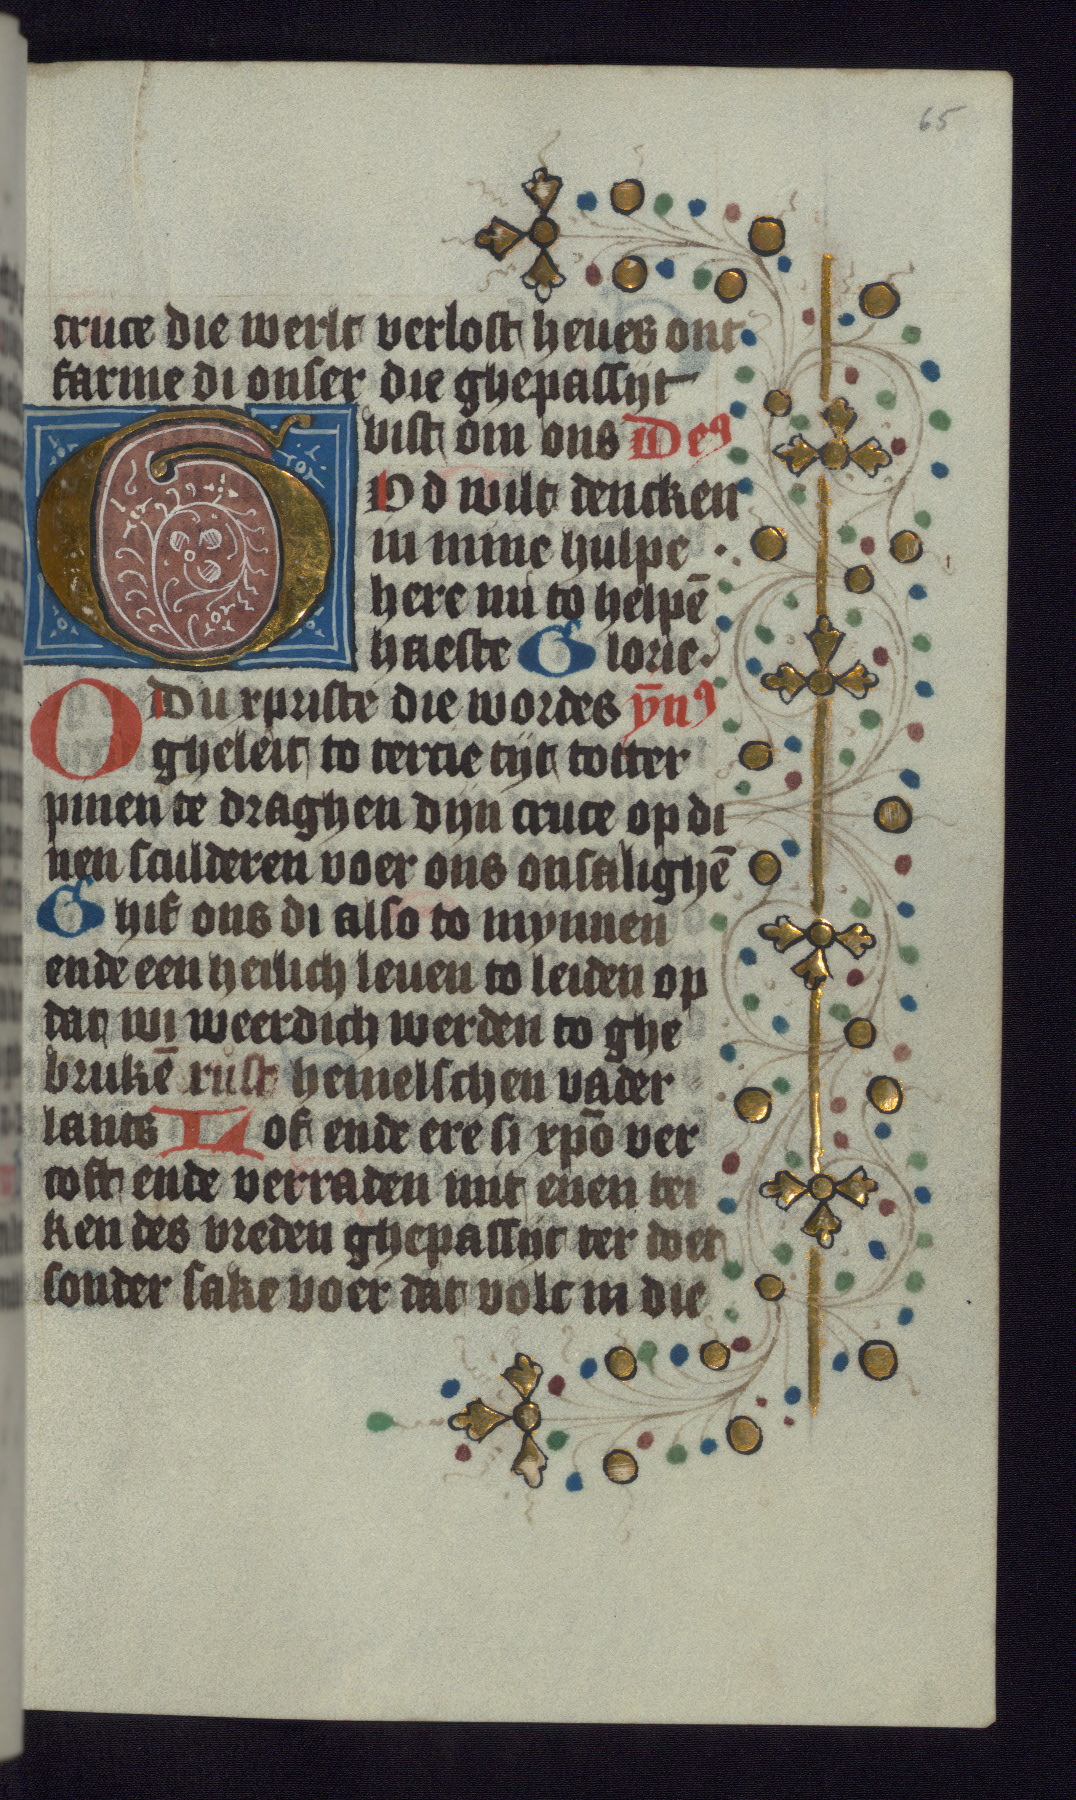 65
cruce die werlt verlost heues ont
farme di onser die ghepassijt
bist om ons Deꝯ
GOd wilt dencken
in mine hulpe
here nu to helpē
haeste Glorie
O Du xpriste die wordes ȳnꝯ
gheleit to tercie tijt totter
pinen te draghen dijn cruce op di
nen sculderen voer ons onsalighē
Ghif ons di also to mynnen
ende een heilich leuen to leiden op
dat wi weerdich werden to ghe
brukē rust hemelschen vader
lants Lof ende ere si xpō ver
coft ende verraden mit enen tei
ken des vreden ghepassijt ter doet
sonder sake voer dat volc in die